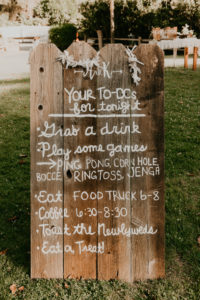 YOUR TO-DOs
for tonight
· Grab a drink
· Play some games
→ PING PONG, CORN HOLE,
BOCCE, RINGTOSS, JENGA
· Eat FOOD TRUCK 6-8
· Cobble 6:30-8:30
· Toast the Newlyweds
· Eat a Treat!